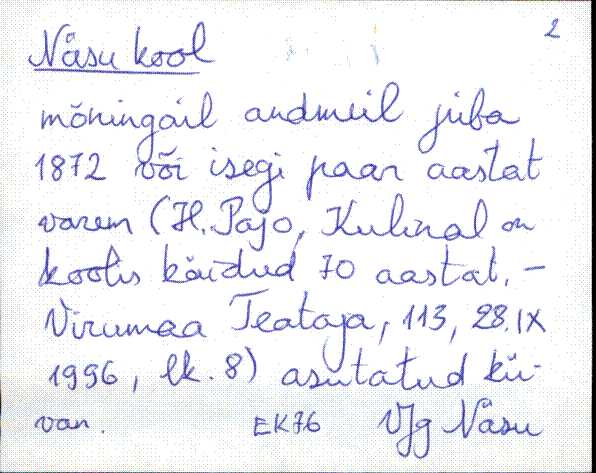 2
Näsu kool
mõningail andmeil juba
1872 või isegi paar aastat
varem (H. Pajo, Kulinal on
koolis käidud 70 aastat. –
Virumaa Teataja, 113, 28. IX
1996, lk. 8) asutatud kü-
van. EK76 VJg Näsu